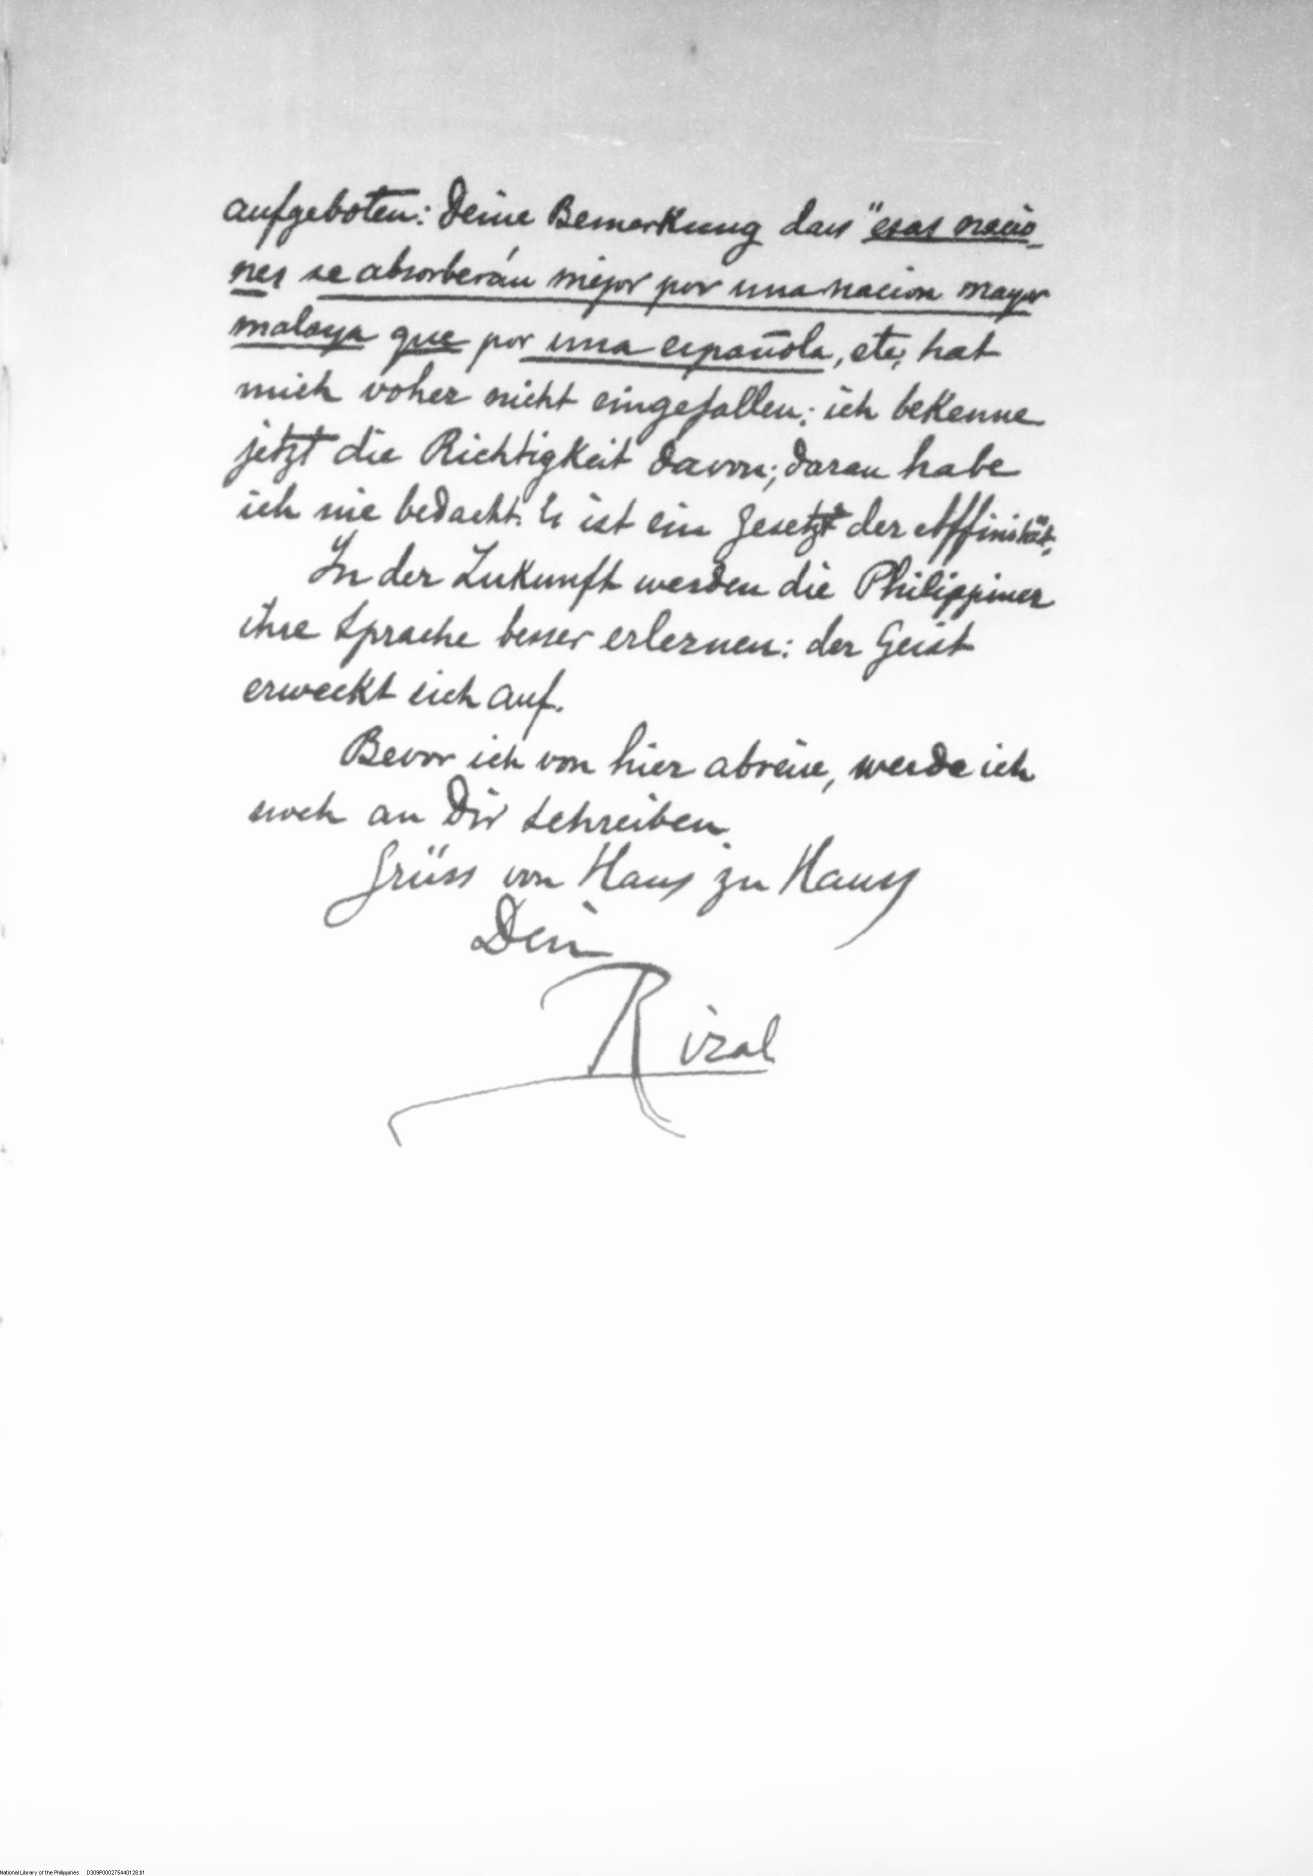 aufgeboten: Deine Bemerkung dass "esas nacio-
nes se absorberán mejor por una nacion mayor
malaya que por una española, etc, hat
mich voher nicht eingefallen; ich bekenne
jetzt die Richtigkeit davon; daran habe
ich nie bedacht. Es ist ein Gesetzt der Affinität.
In der Zukunft werden die Philippiner
ihre Sprache besser erlernen: der Geist
erweckt sich auf.
Bevor ich von hier abreise, werde ich
noch an Dir schreiben.
Grüss von Haus zu Haus
Dein
Rizal
National Library of the Philippines